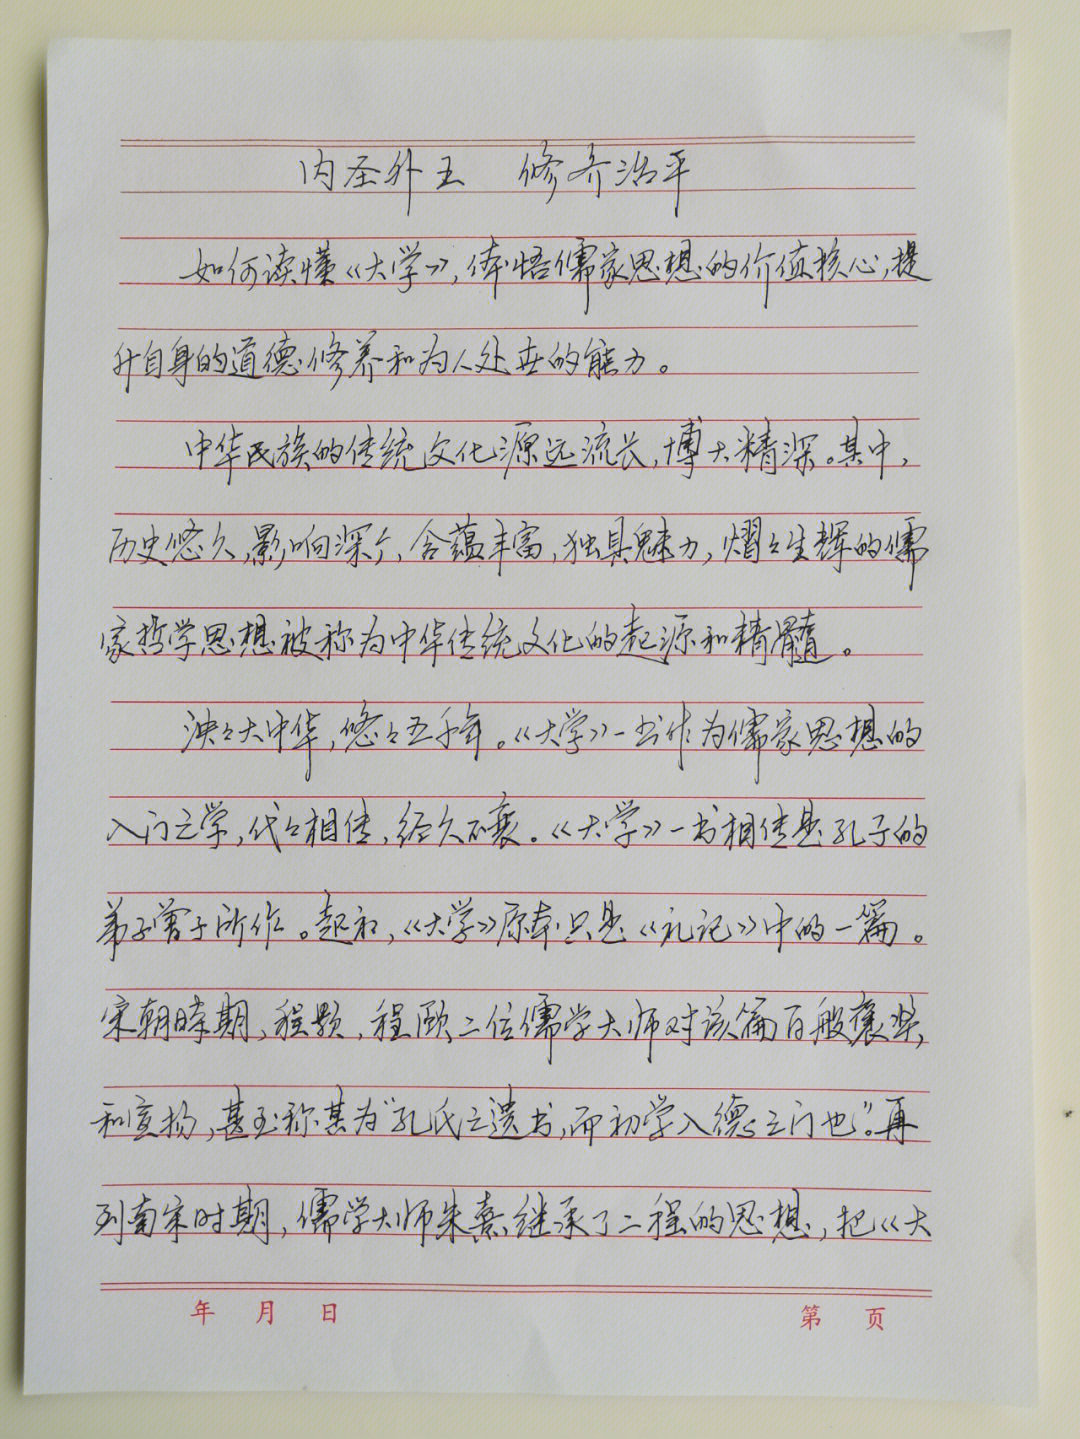 内圣外王 修齐治平
如何读懂《大学》,体悟儒家思想的价值核心,提
升自身的道德修养和为人处世的能力。
中华民族的传统文化源远流长,博大精深。其中,
历史悠久,影响深广,含蕴丰富,独具魅力,熠々生辉的儒
家哲学思想被称为中华传统文化的起源和精髓。
泱々大中华,悠々五千年。《大学》一书作为儒家思想的
入门之学,代々相传,经久不衰。《大学》一书相传是孔子的
弟子曾子所作。起初,《大学》原本只是《礼记》中的一篇。
宋朝時期,程颢,程颐二位儒学大师对该篇百般褒奖,
和宣扬,甚至称其为"孔氏之遗书,而初学入德之门也"。再
到南宋时期,儒学大师朱熹继承了二程的思想,把《大
年 月 日
第 页